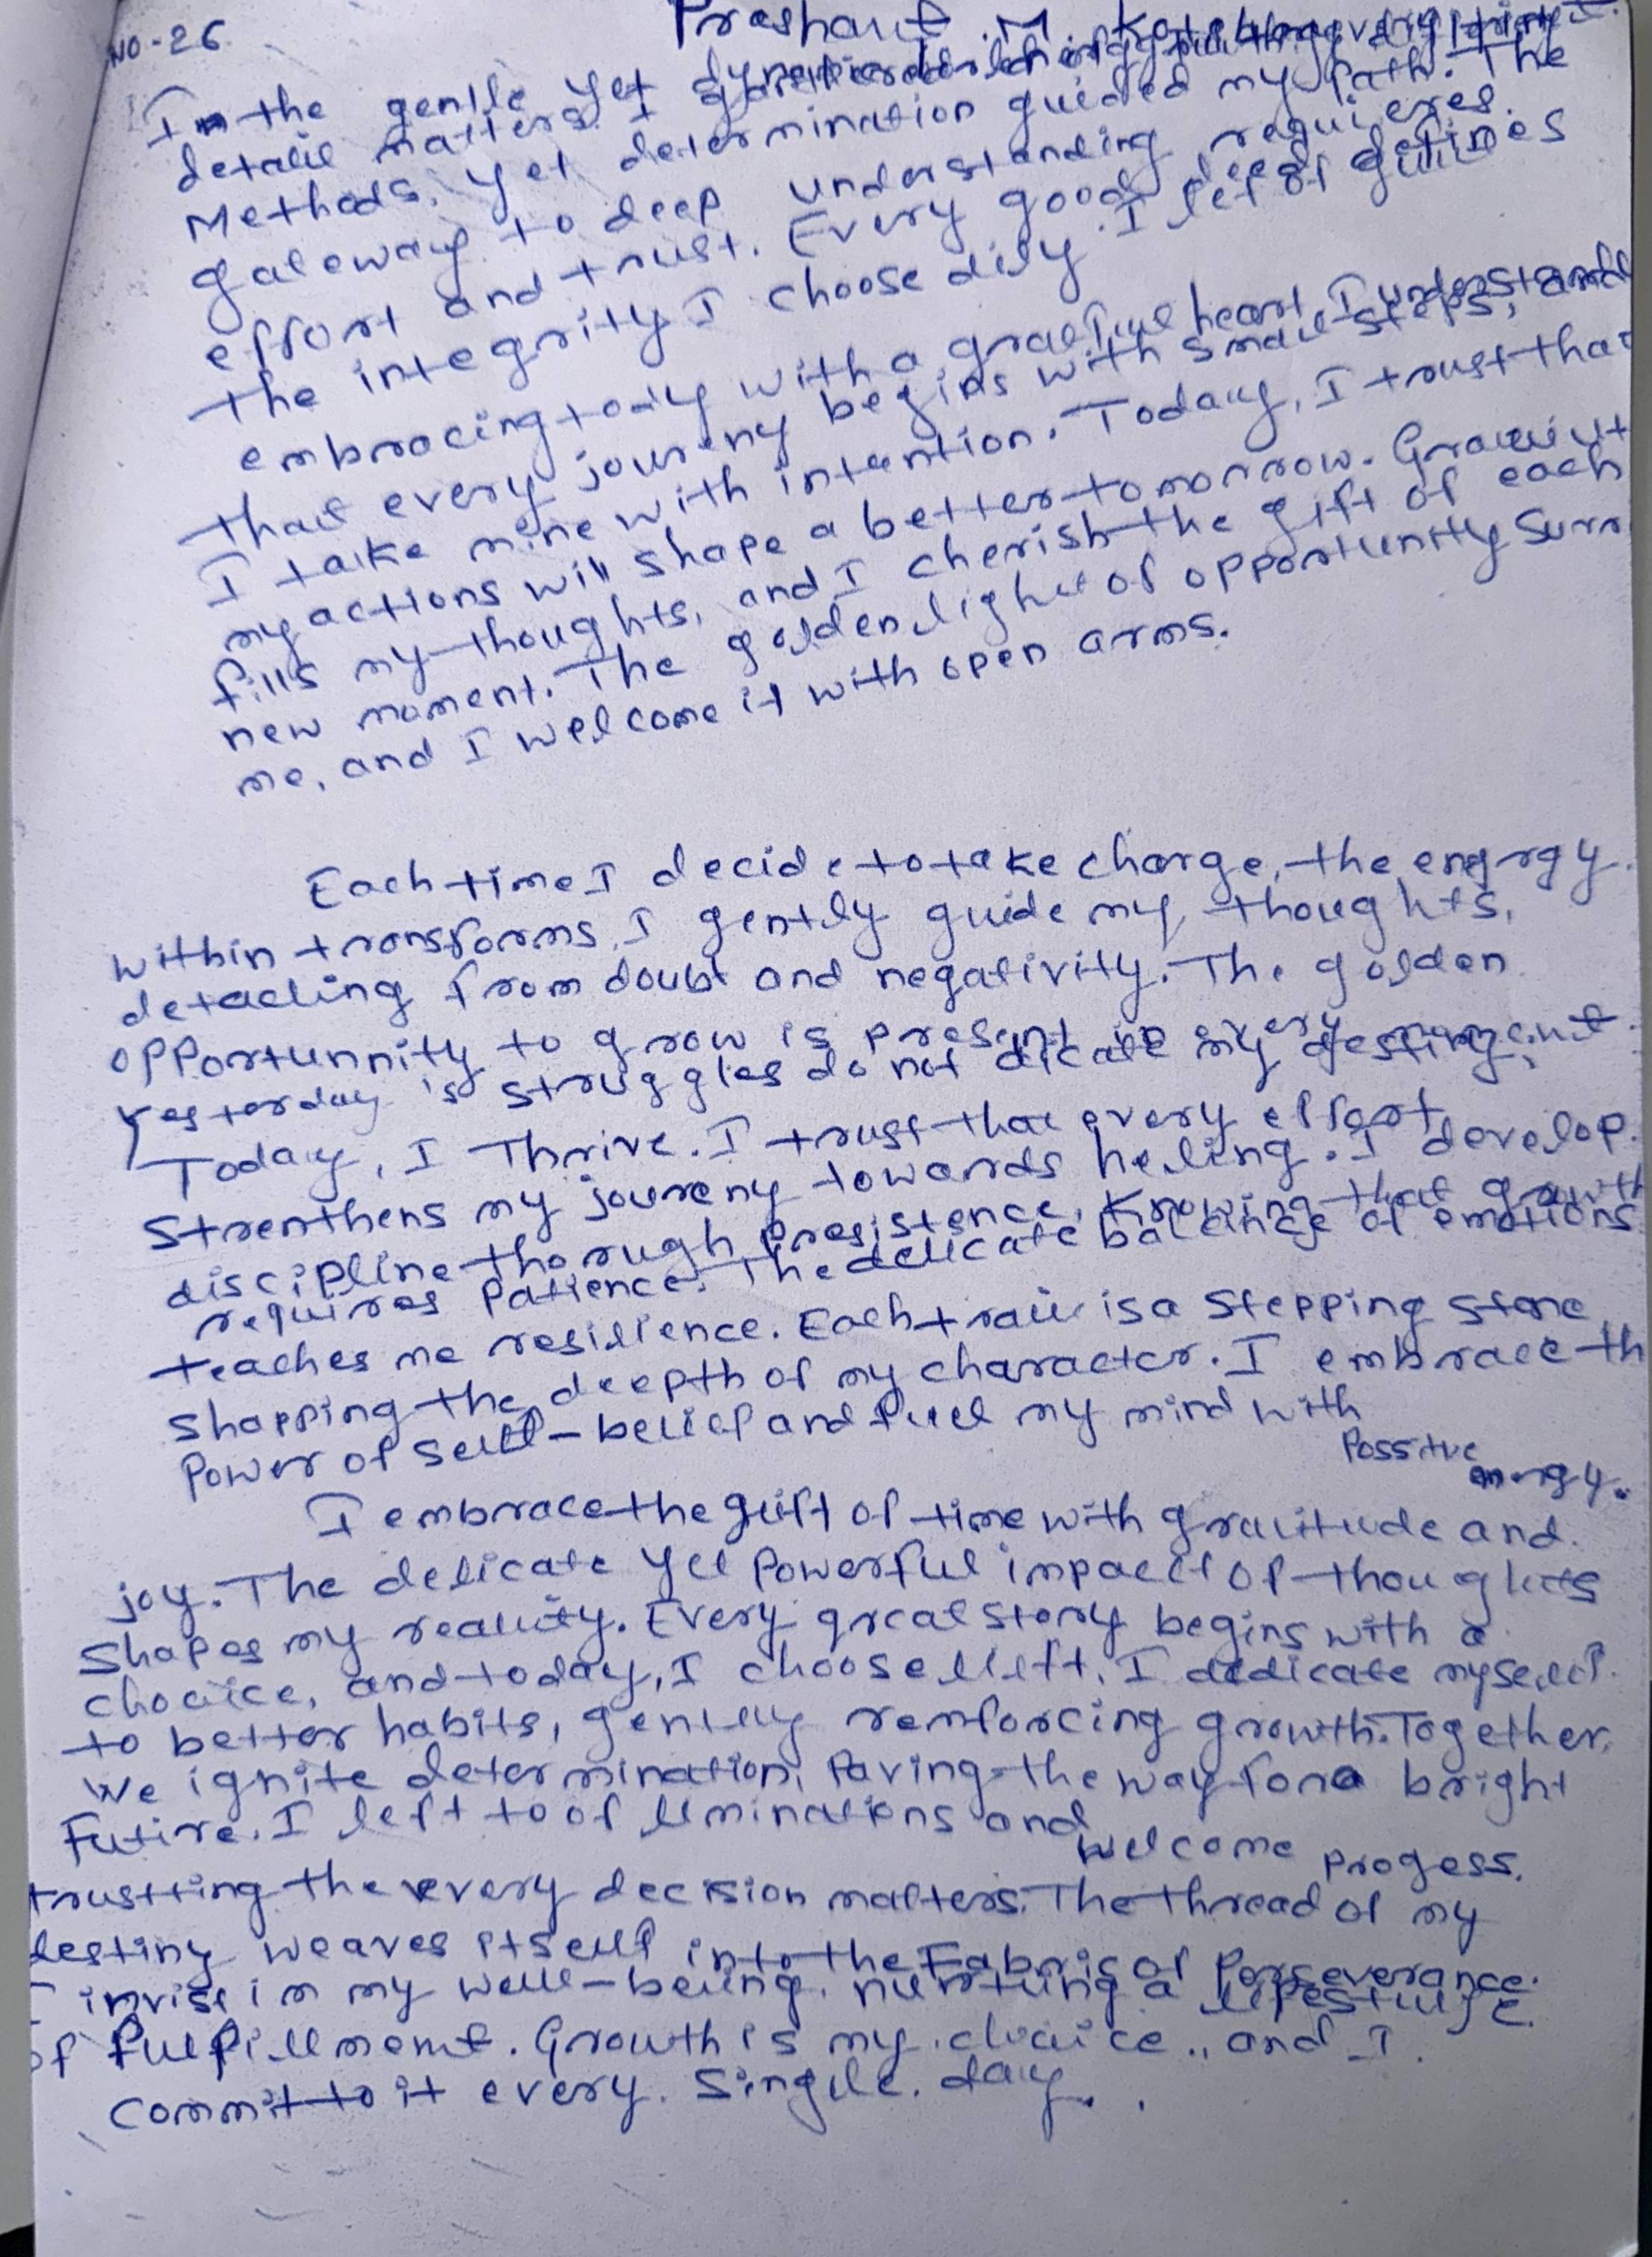 NO-26
Prashant .M.
In the gentle yet
detail matters. I
Methods. yet determination guided my path. The
gateway to deep understanding requieres.
effort and trust. Every good deed defines
the integrity I choose dily. I let of guilt
embracing toaily with a gratful heart, I understand
that every joureny begins with small steps, and
I take mine with intention. Today, I trust that
my actions will shape a better tomorrow.
fills my thoughts, and I cherish the gift of each
new moment. The golden light of opportunity surr
me, and I welcome it with open arms.
Each time I decide to take charge, the energy
within transforms. I gently guide my thoughts,
detacling from doubt and negativity. The golden
opportunnity to grow is present in every moment.
Yesterday's struggles do not dicate my destiny,
Today, I Thrive. I trust that every effort
strenthens my joureny towards heling. I develop
discipline thorough presistence, knowing that growth
requires patience. The delicate balance of emotions
teaches me resilience. Each trail is a stepping stone
shapping the deepth of my character. I embrace th
power of self-belief and fuel my mind with
possitive energy.
I embrace the guift of time with gratitude and
joy. The delicate yet powerful impact of thoughts
shapes my reality. Every great story begins with a
choice, and today, I choose I dedicate myself
to better habits, gently reinforcing growth. Together,
we ignite determination, Paving the way for a bright
Future. I left to of liminations and welcome progess.
trustting the every decision matters. The thread of my
destiny weaves itself into the Fabric of Perseverance.
I in my well-being. a
of fulfillment. Growth is my choice., and I
commit to it every. single. day..